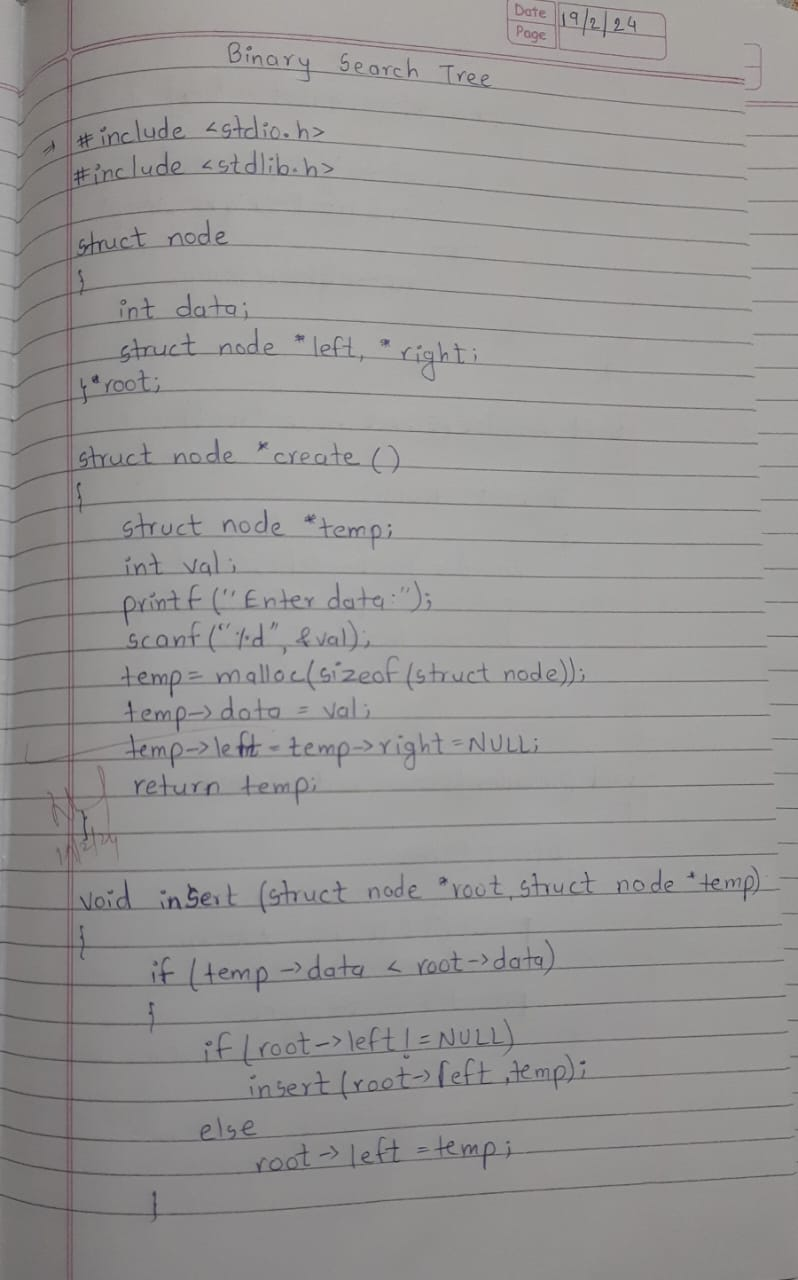 Date 19/2/24
Page
Binary Search Tree
→ #include <stdio.h>
#include <stdlib.h>
struct node
{
int data;
struct node *left, *right;
}*root;
struct node *create ()
{
struct node *temp;
int val;
printf ("Enter data:");
scanf ("%d", &val);
temp = malloc(sizeof (struct node));
temp->data = val;
temp->left = temp->right = NULL;
return temp;
}
void insert (struct node *root, struct node *temp)
{
if (temp->data < root->data)
{
if (root->left != NULL)
insert (root->left, temp);
else
root->left = temp;
}